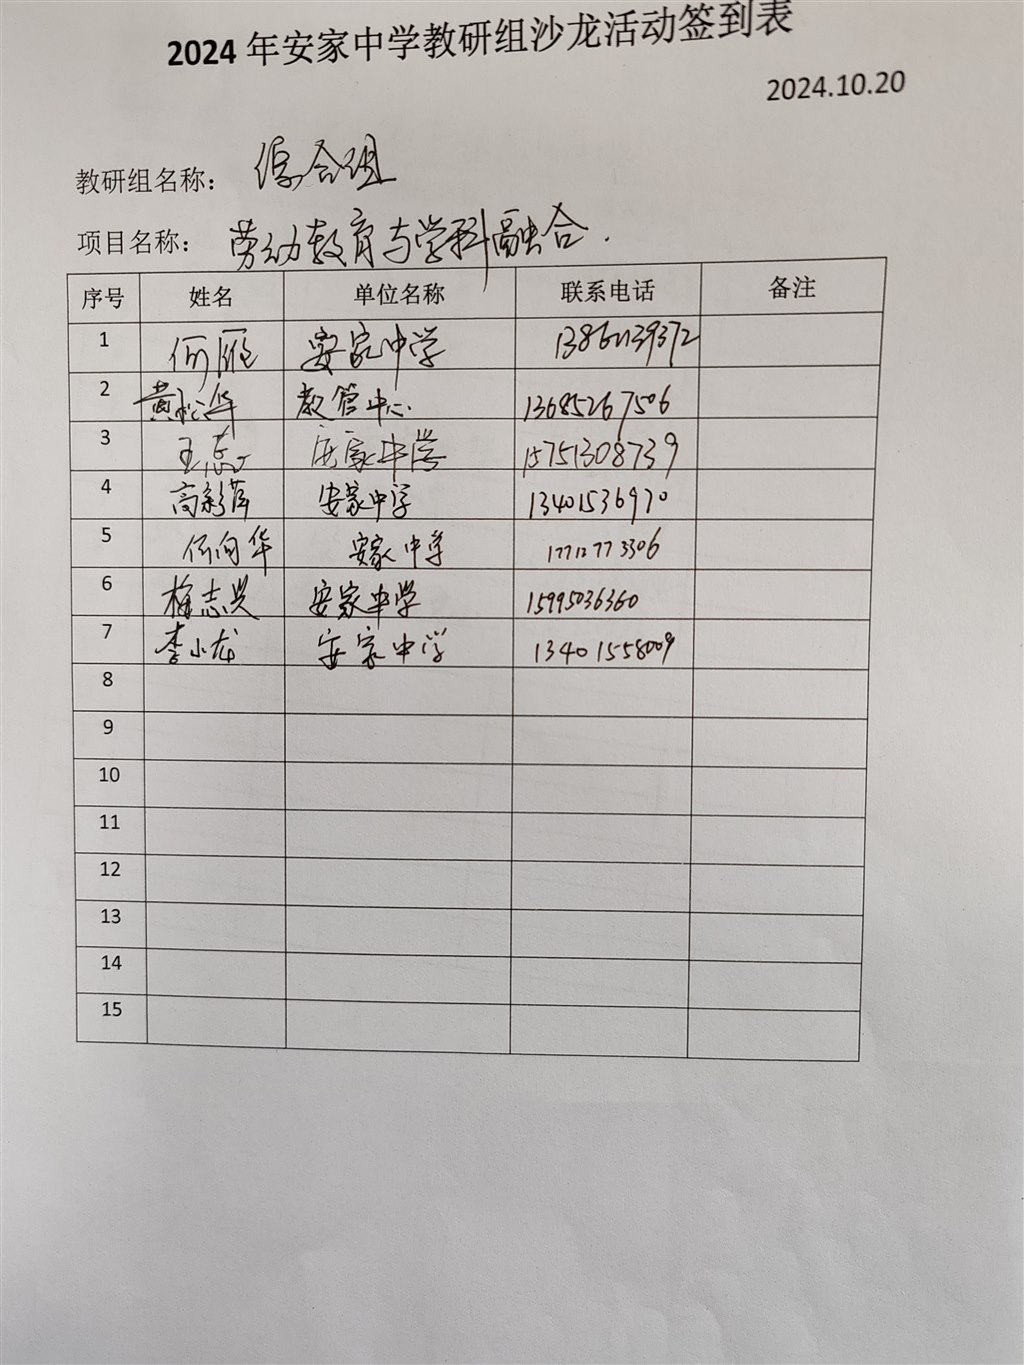 2024年安家中学教研组沙龙活动签到表
2024.10.20
教研组名称： 综合组
项目名称： 劳动教育与学科融合.
序号 姓名 单位名称 联系电话 备注
1 何雁 安家中学
2 黄松华 教管中心 13685267506
3 王志 安家中学 15751308739
4 高彩萍 安家中学 13401536970
5 何向华 安家中学 17712773306
6 梅志兴 安家中学 15995036360
7 李小龙 安家中学 13401558009
8
9
10
11
12
13
14
15